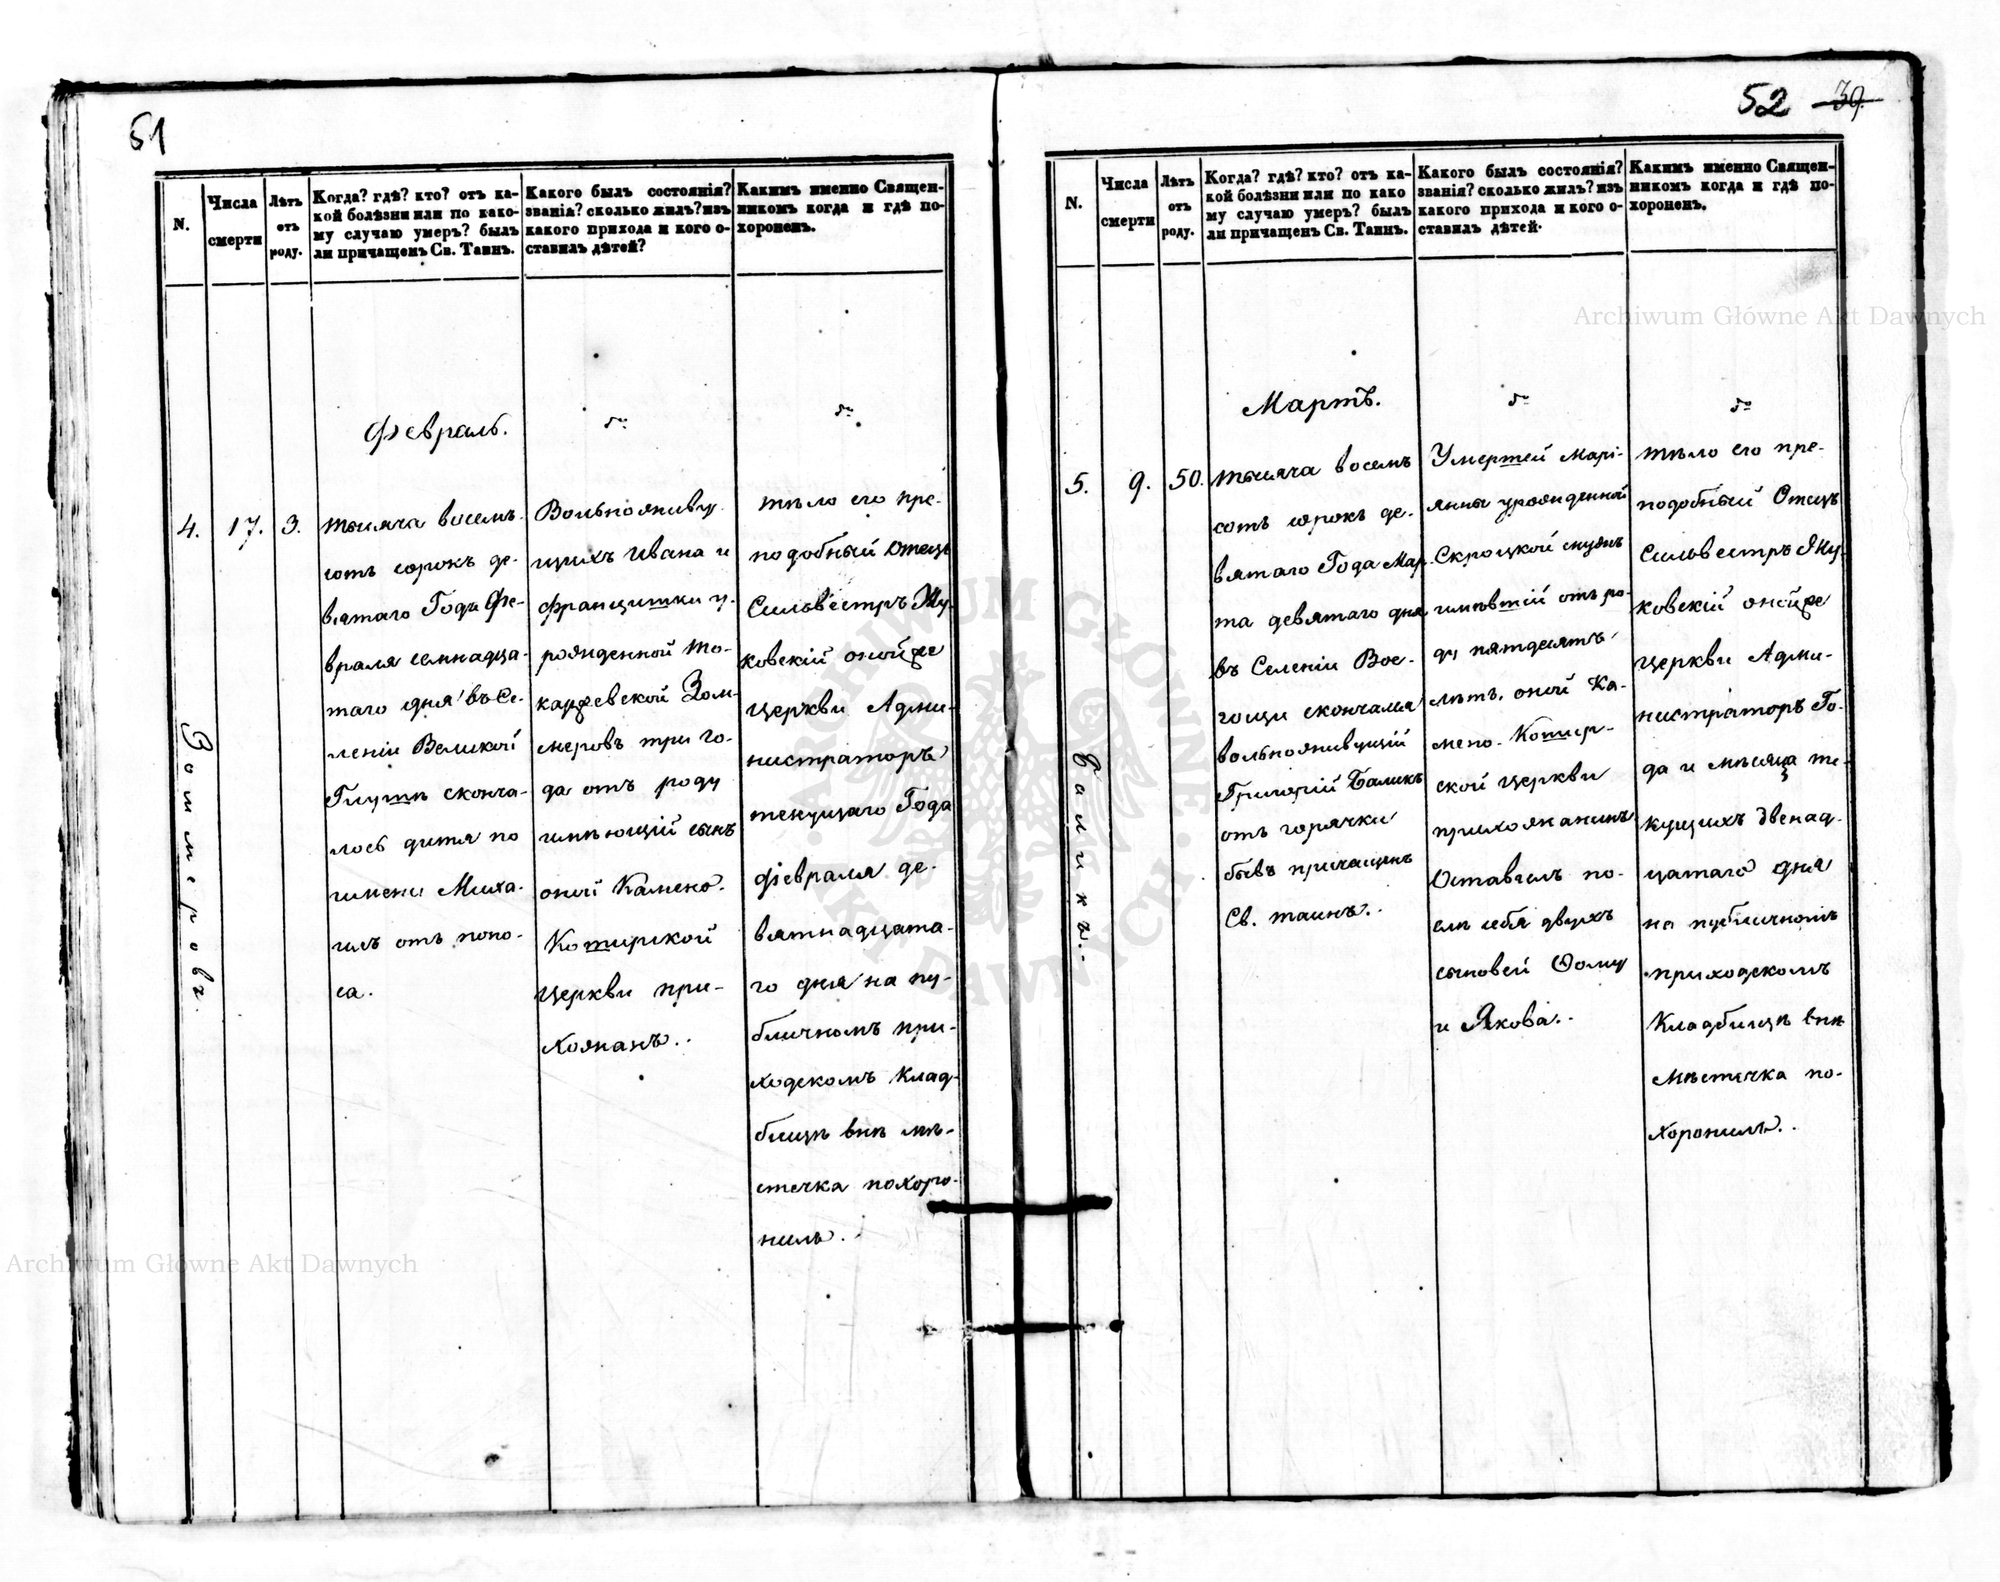 51
N.
Числа
смерти
Лѣтъ
отъ
роду.
Когда? гдѣ? кто? отъ ка-
кой болѣзни или по како-
му случаю умеръ? былъ
ли причащенъ Св. Таинъ.
Какого былъ состоянія?
званія? сколько жилъ? изъ
какого прихода и кого о-
ставилъ дѣтей?
Какимъ именно Священ-
никомъ когда и гдѣ по-
хороненъ.
Февраль.
4.
17.
3.
Зоммеровъ
тысяча восемь-
сотъ сорокъ де-
вятаго Года Фе-
враля семнадца-
таго дня въ Се-
леніи Великой
Глушѣ сконча-
лось дитя по
имени Миха-
илъ отъ поно-
са.
Вольноживу-
щихъ Ивана и
Францишки у-
рожденной То-
каржевской Зом-
меровъ три го-
да отъ роду
имѣющій сынъ
оной Камено-
Котирской
Церкви при-
хожанъ..
тѣло его пре-
подобный Отецъ
Сильвестръ Яку-
ковскій онойже
Церкви Адми-
нистраторъ
текущаго Года
февраля де-
вятнадцата-
го дня на пу-
бличномъ при-
ходскомъ Клад-
бищѣ внѣ мѣ-
стечка похоро-
нилъ..
52 39.
N.
Числа
смерти
Лѣтъ
отъ
роду.
Когда? гдѣ? кто? отъ ка-
кой болѣзни или по како
му случаю умеръ? былъ
ли причащенъ Св. Таинъ.
Какого былъ состоянія?
званія? сколько жилъ? изъ
какого прихода и кого о-
ставилъ дѣтей.
Какимъ именно Священ-
никомъ когда и гдѣ по-
хороненъ.
Мартъ.
5.
9.
50.
Баликъ.
тысяча восемь
сотъ сорокъ де-
вятаго Года Мар-
та девятаго дня
въ Селеніи Вое-
гощи скончался
вольноживущій
Григорій Баликъ
отъ горячки
бывъ причащенъ
Св. таинъ..
Умершей Марі-
янны урожденной
Скроцкой мужъ
имѣвшій отъ ро-
ду пятдесятъ
лѣтъ. оной Ка-
мено-Котир-
ской Церкви
прихожанинъ
Оставилъ по-
слѣ себя двухъ
сыновей Ѳому
и Якова..
тѣло его пре-
подобный Отецъ
Сильвестръ Яку-
ковскій онойже
Церкви Адми-
нистраторъ Го-
да и мѣсяца те-
кущихъ двенад-
цатаго дня
на публичномъ
приходскомъ
Кладбищѣ внѣ
Мѣстечка по-
хоронилъ..
Archiwum Główne Akt Dawnych
Archiwum Główne Akt Dawnych
ARCHIWUM GŁÓWNE AKT DAWNYCH